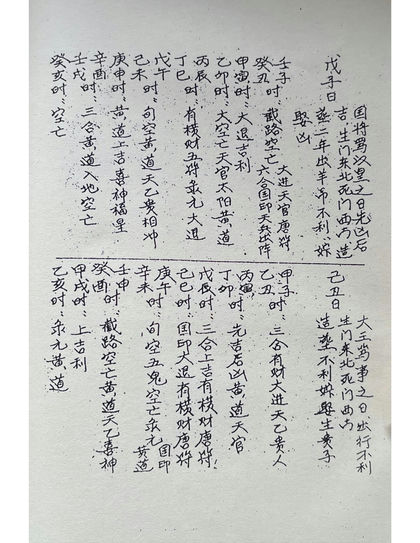 戊子日
国将骂以皇之日先凶后
吉.生门东北死门西南造
葬二年出羊吊不利.嫁
娶凶
壬子时：截路空亡 大进天官唐符
癸丑时：六合国印天兵出阵
甲寅时：大退吉利
乙卯时：大空亡天官太阳黄道
丙辰时：
丁巳时：有横财五符禾元大进
戊午时：
己未时：旬空黄道天乙贵相冲
庚申时：黄道上吉喜神福星
辛酉时：
壬戌时：三合黄道入地空亡
癸亥时：空亡
己丑日
大王骂事之日出行不利
生门东北死门西南
造葬不利嫁娶生贵子
甲子时：三合有财大进天乙贵人
乙丑时：
丙寅时：先吉后凶黄道天官
丁卯时：
戊辰时：三合上吉有横财唐符
己巳时：国印大退有横财唐符
庚午时：
辛未时：旬空五鬼空亡禾元国印黄道
壬申时：
癸酉时：截路空亡黄道天乙喜神
甲戌时：上吉利
乙亥时：禾元黄道